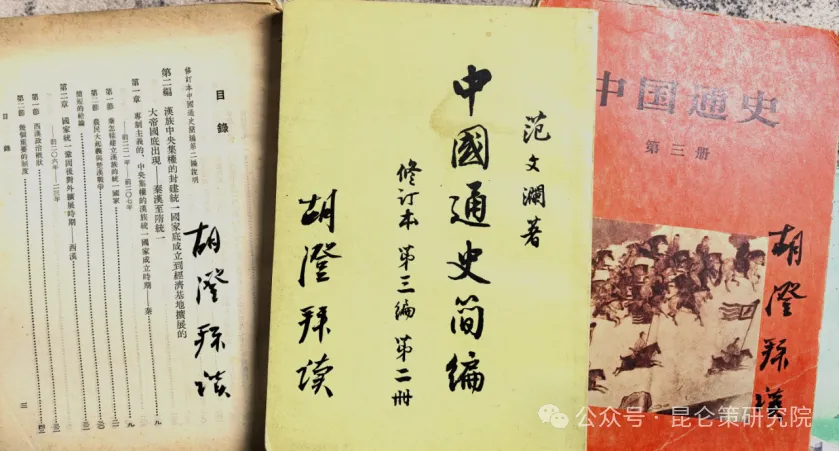 目錄
修訂本中國通史簡編第二編說明
第二編 漢族中央集權的封建統一國家底成立到經濟基地擴展的
大帝國底出現——秦漢至隋統一
第一章 專制主義的、中央集權的漢族統一國家成立時期——秦
——前二二一年——前二〇七年
第一節 秦怎樣建立漢族的統一國家
第二節 農民大起義與楚漢戰爭
簡短的結論
第二章 國家統一鞏固後對外擴展時期——西漢
——前二〇六年——二三年
第一節 西漢政治概狀
第二節 幾個重要的制度
目錄
三
胡澄拜讀
范文瀾著
中國通史简编
修订本 第三编 第二册
胡澄拜读
中国通史
第三册
胡澄拜读
公众号·昆仑策研究院